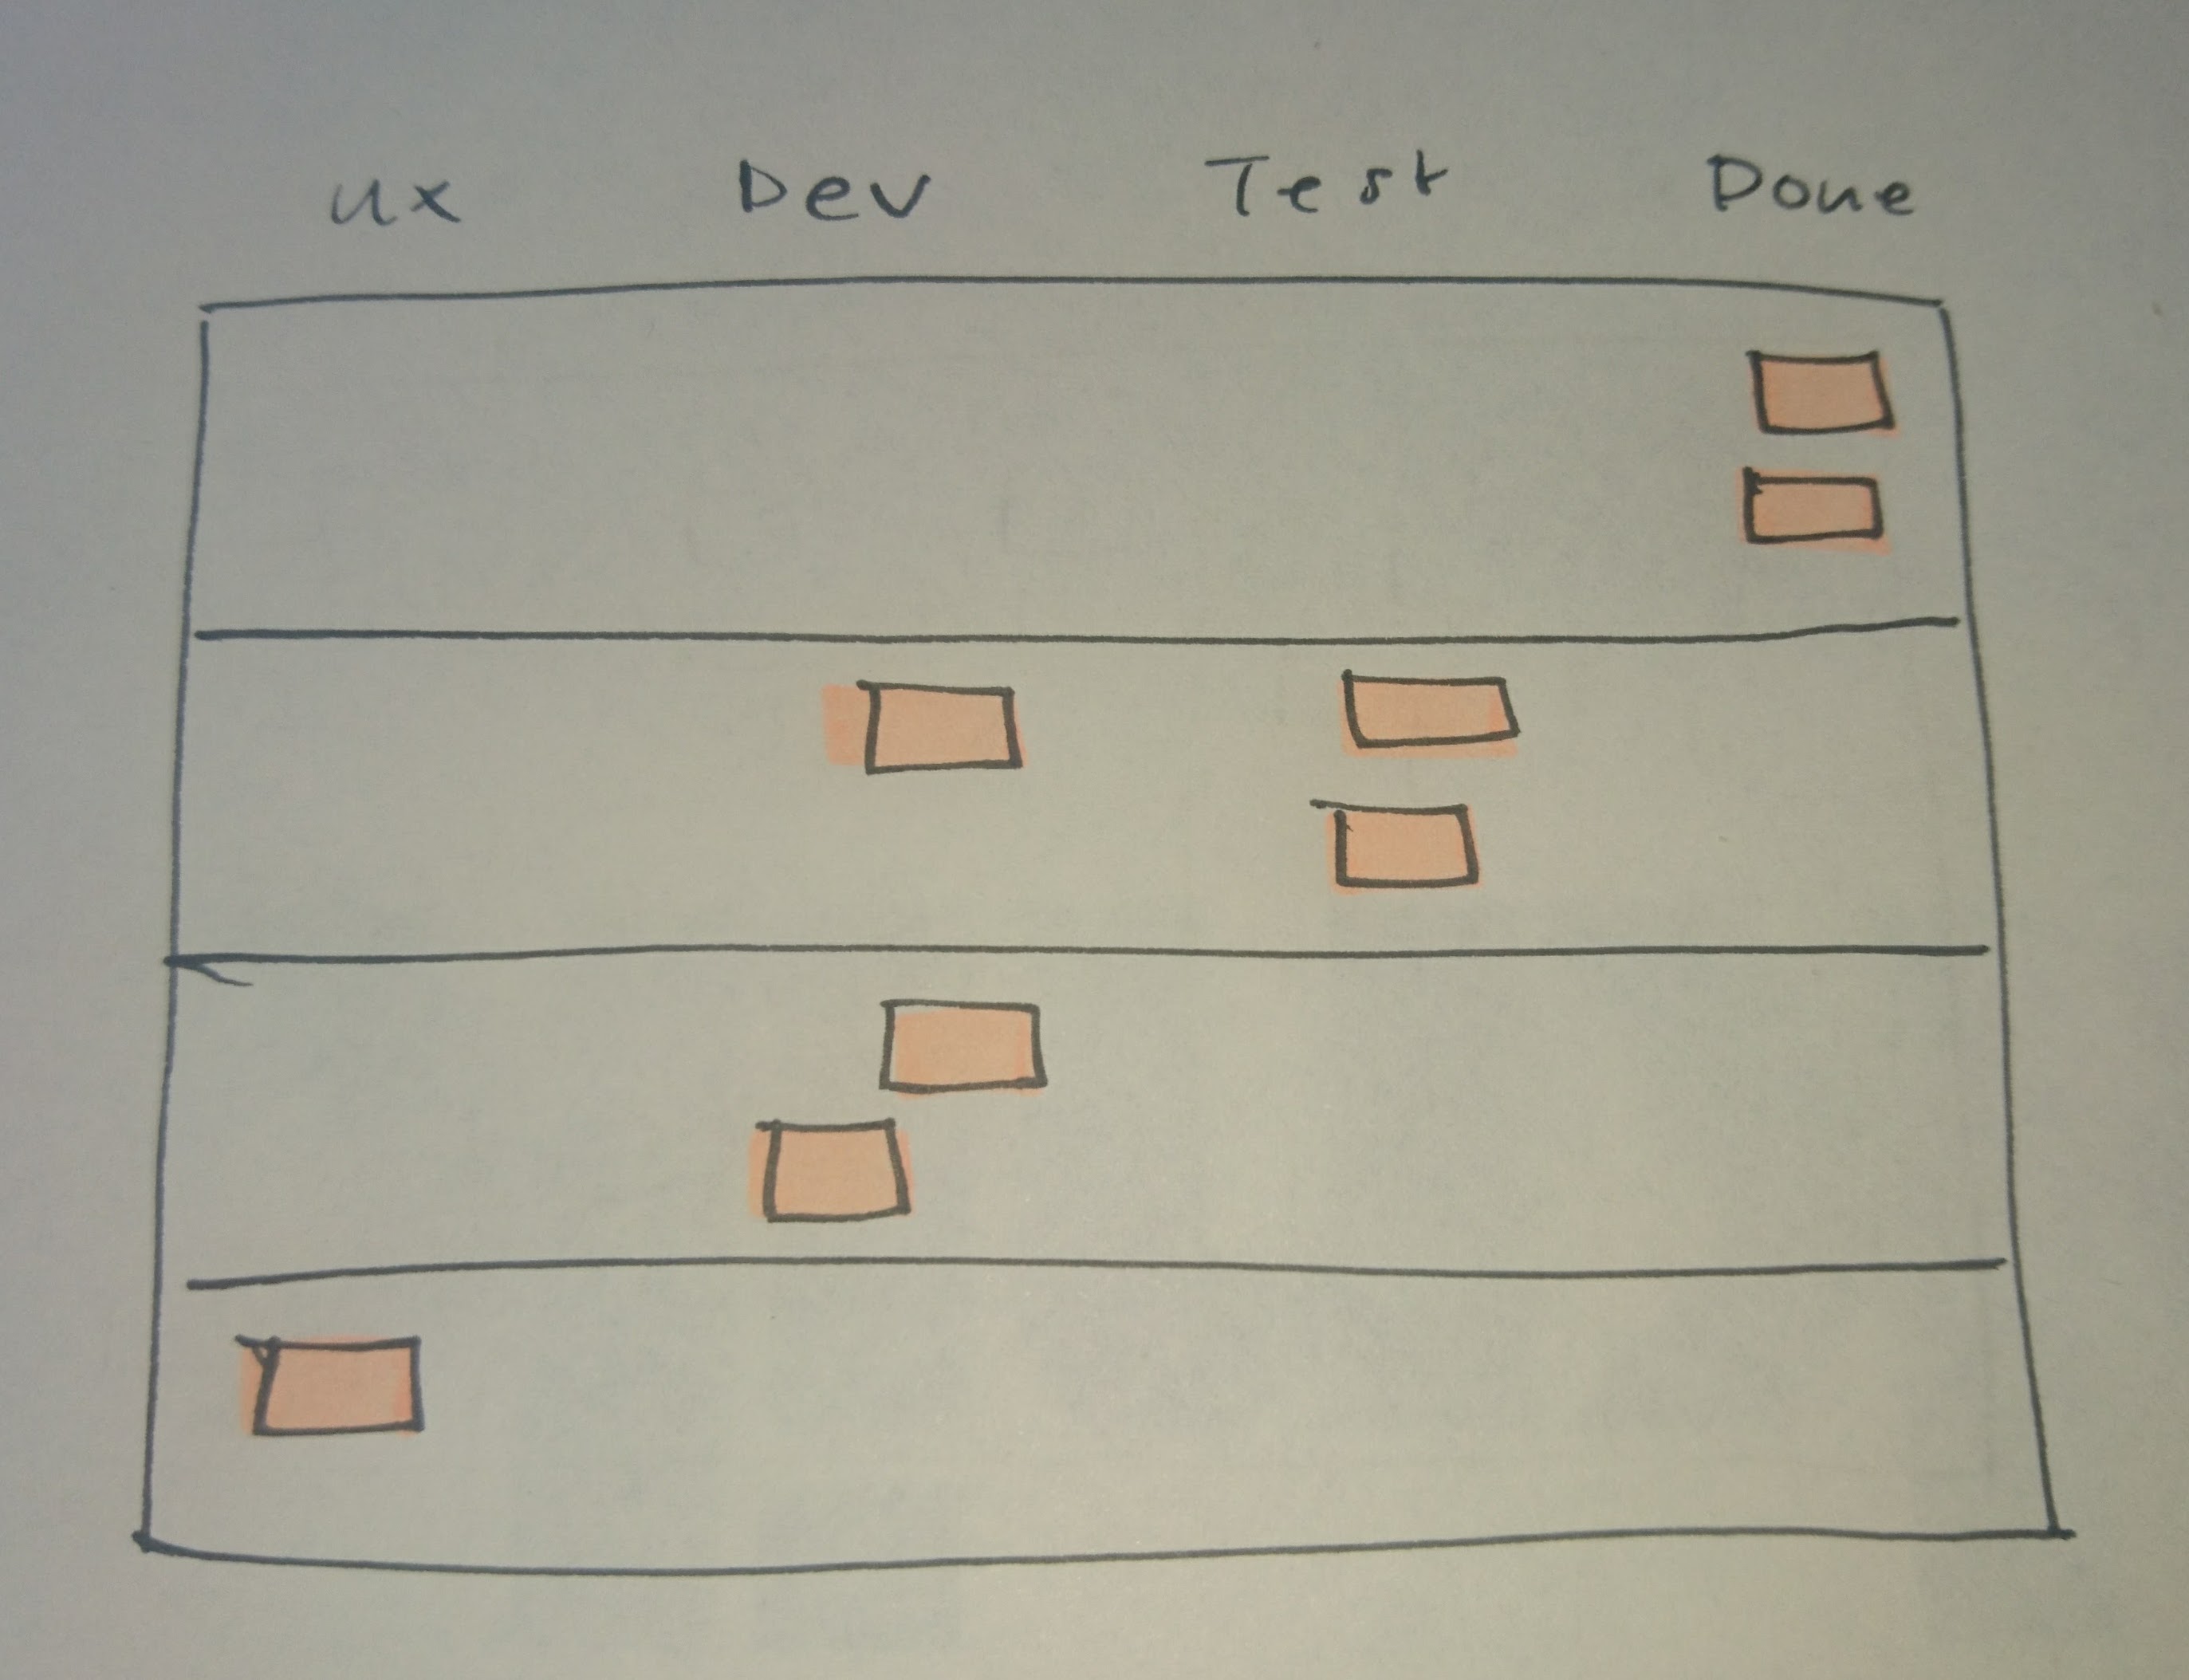 UX Dev Test Done